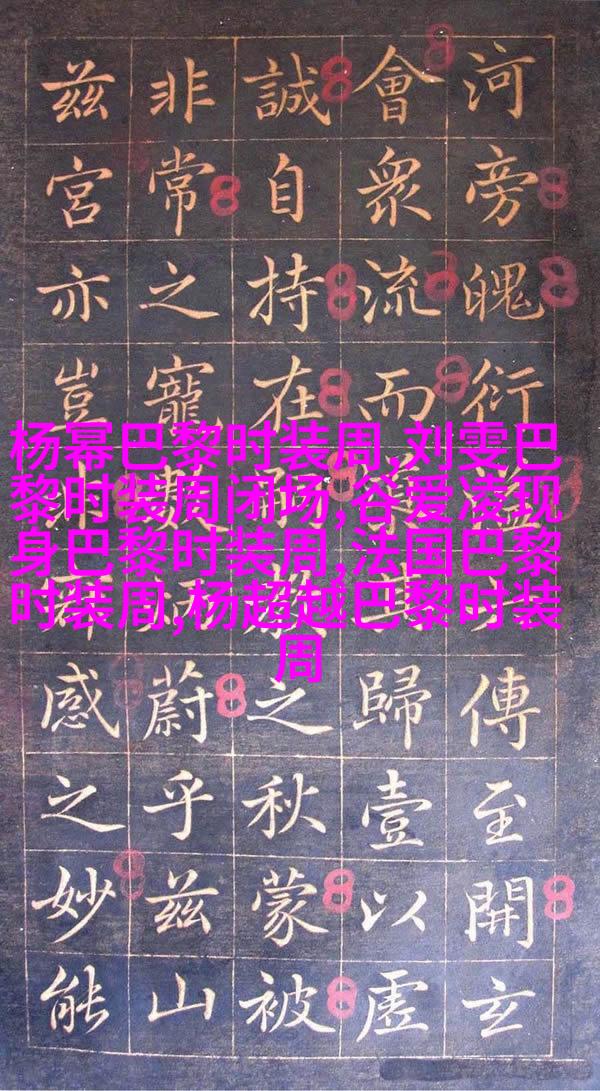 河旁魄衍傳至開玄
會眾流而歸壹以虛
誠自持在之秋蒙被
非常之寵蔚乎茲山
茲宮亦豈感之妙能
杨幂巴黎时装周,刘雯巴
黎时装周闭场,谷爱凌现
身巴黎时装周,法国巴黎
时装周,杨超越巴黎时装
周